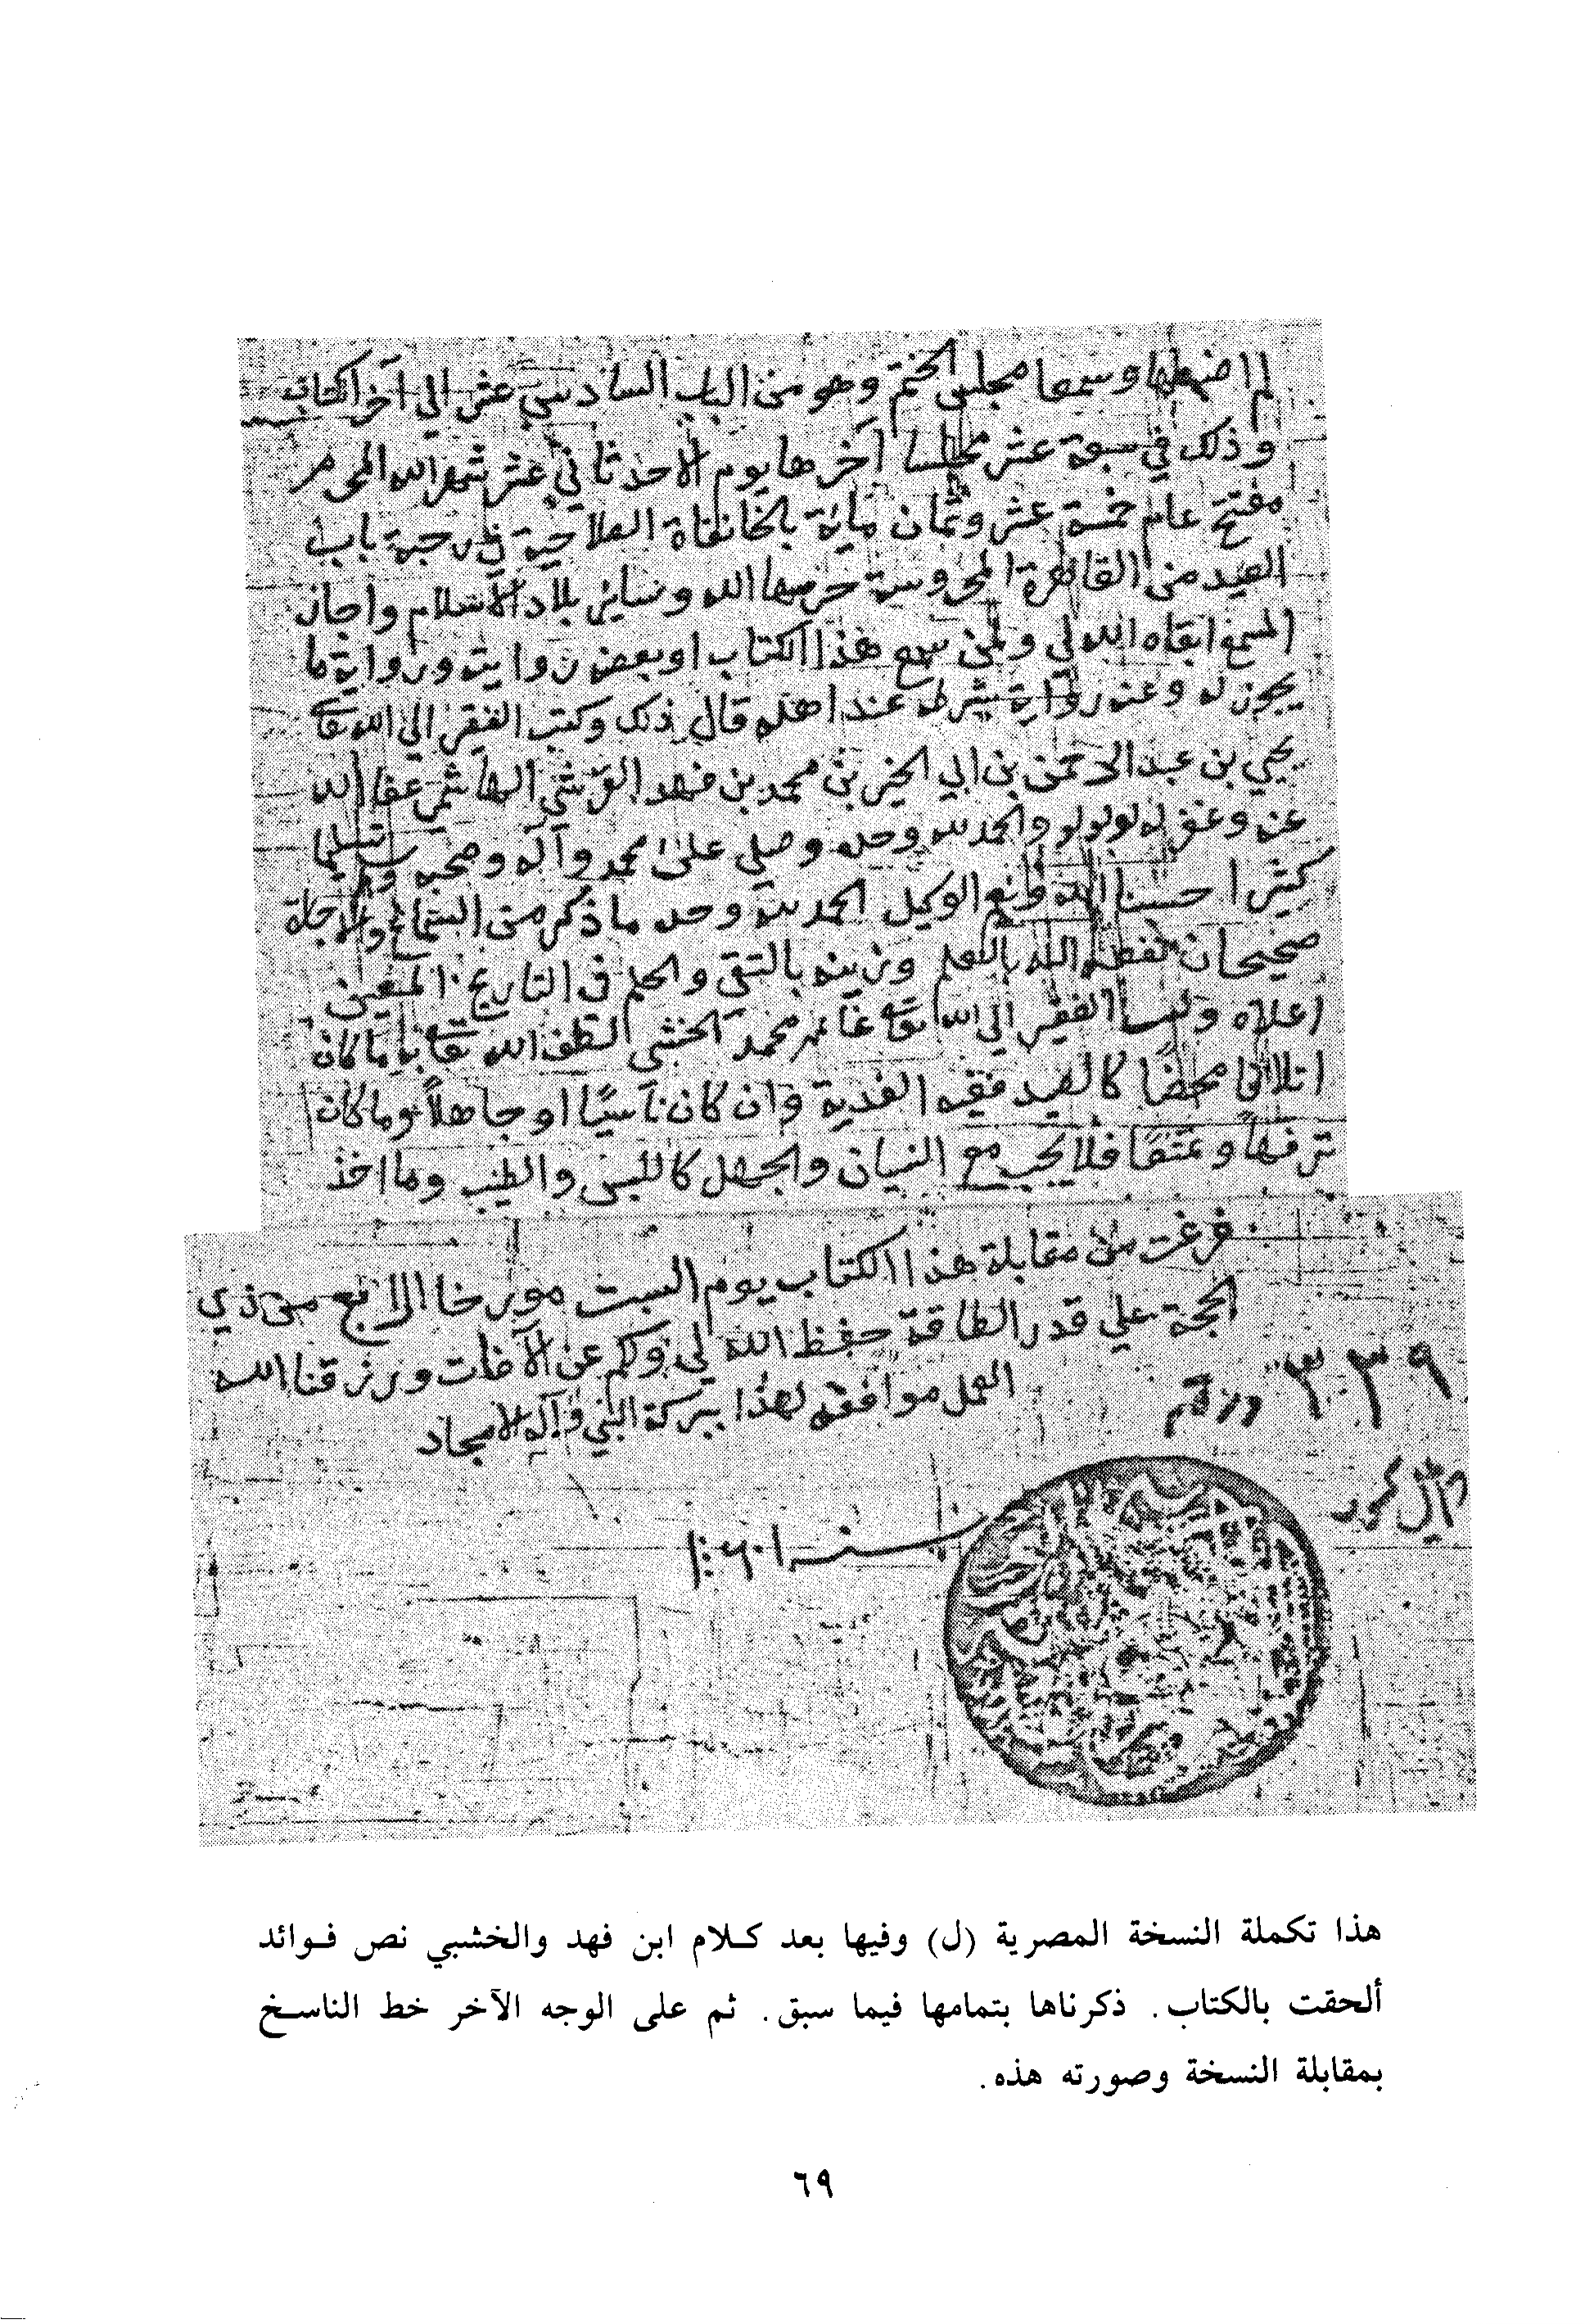 لم اضبطها وسمعا مجلس الختم وهو من الباب السادس عشر الي آخر الكتاب
وذلك في سبعة عشر مجلسا آخرها يوم الاحد ثاني عشر شهر الله المحرم
مفتتح عام خمسة عشر وثمان ماية بالخانقاة الصلاحية في رحبة باب
العيد من القاهرة المحروسة حرسها الله وساير بلاد الاسلام واجاز
المسمع ابقاه الله لي ولمن سمع هذا الكتاب او بعضه روايته ورواية ما
يجوز له وعنه رواية بشرطه عند اهله قال ذلك وكتب الفقير الي الله تعالى
يحيي بن عبد الرحمن بن ابي الخير بن محمد بن فهد القرشي الهاشمي عفا الله
عنه وغفر له ولوالديه والحمد لله وحده وصلي على محمد وآله وصحبه وسلم تسليما
كثيرا حسبنا الله ونعم الوكيل الحمد لله وحده ما ذكر من السماع والاجازة
صحيحان نفعه الله بالعلم وزينه بالتقي والحلم في التاريخ المعين
اعلاه وكتب الفقير الي الله تعالى محمد الخشبي لطف الله تعالى به ما كان
اتلافا محضا كالصيد ففيه الفدية وان كان ناسيًا او جاهلاً وما كان
ترفهًا وتمتعًا فلا يجب مع النسيان والجهل كاللبس والطيب وما اخذ
فرغت من مقابلة هذا الكتاب يوم السبت مورخا الرابع من ذي
الحجة علي قدر الطاقة حفظ الله لي ولكم عن الآفات ورزقنا الله
العمل موافقه لهذا ببركة النبي وآله الامجاد
٣٣٩ ورقم
سنه
هذا تكملة النسخة المصرية (ل) وفيها بعد كلام ابن فهد والخشبي نص فوائد
ألحقت بالكتاب. ذكرناها بتمامها فيما سبق. ثم على الوجه الآخر خط الناسخ
بمقابلة النسخة وصورته هذه.
٦٩